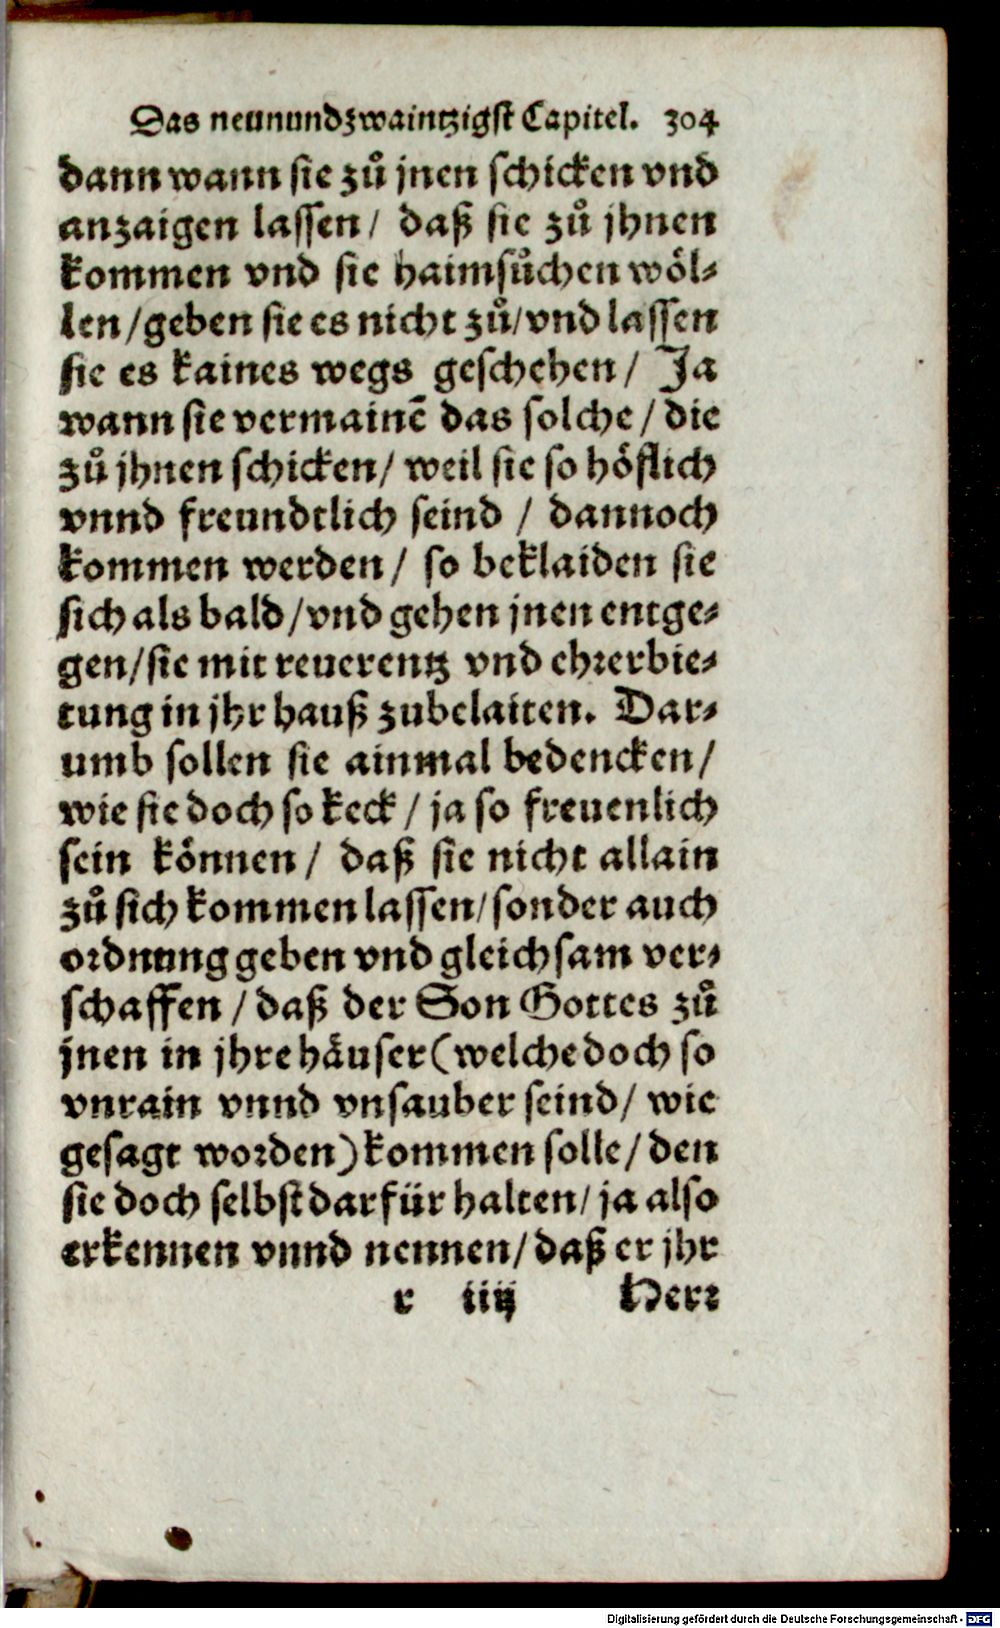 Das neunundzwaintzigst Capitel. 304
dann wann sie zů jnen schicken vnd
anzaigen lassen / daß sie zů jhnen
kommen vnd sie haimsůchen wöl⸗
len / geben sie es nicht zů / vnd lassen
sie es kaines wegs geschehen / Ja
wann sie vermainē das solche / die
zů jhnen schicken / weil sie so höflich
vnnd freundtlich seind / dannoch
kommen werden / so beklaiden sie
sich als bald / vnd gehen jnen entge⸗
gen / sie mit reuerentz vnd ehrerbie⸗
tung in jhr hauß zubelaiten. Dar⸗
umb sollen sie ainmal bedencken /
wie sie doch so keck / ja so freuenlich
sein können / daß sie nicht allain
zů sich kommen lassen / sonder auch
ordnung geben vnd gleichsam ver⸗
schaffen / daß der Son Gottes zů
jnen in jhre häuser (welche doch so
vnrain vnnd vnsauber seind / wie
gesagt worden) kommen solle / den
sie doch selbst darfür halten / ja also
erkennen vnnd nennen / daß er jhr
r iiij Herr
Digitalisierung gefördert durch die Deutsche Forschungsgemeinschaft - DFG